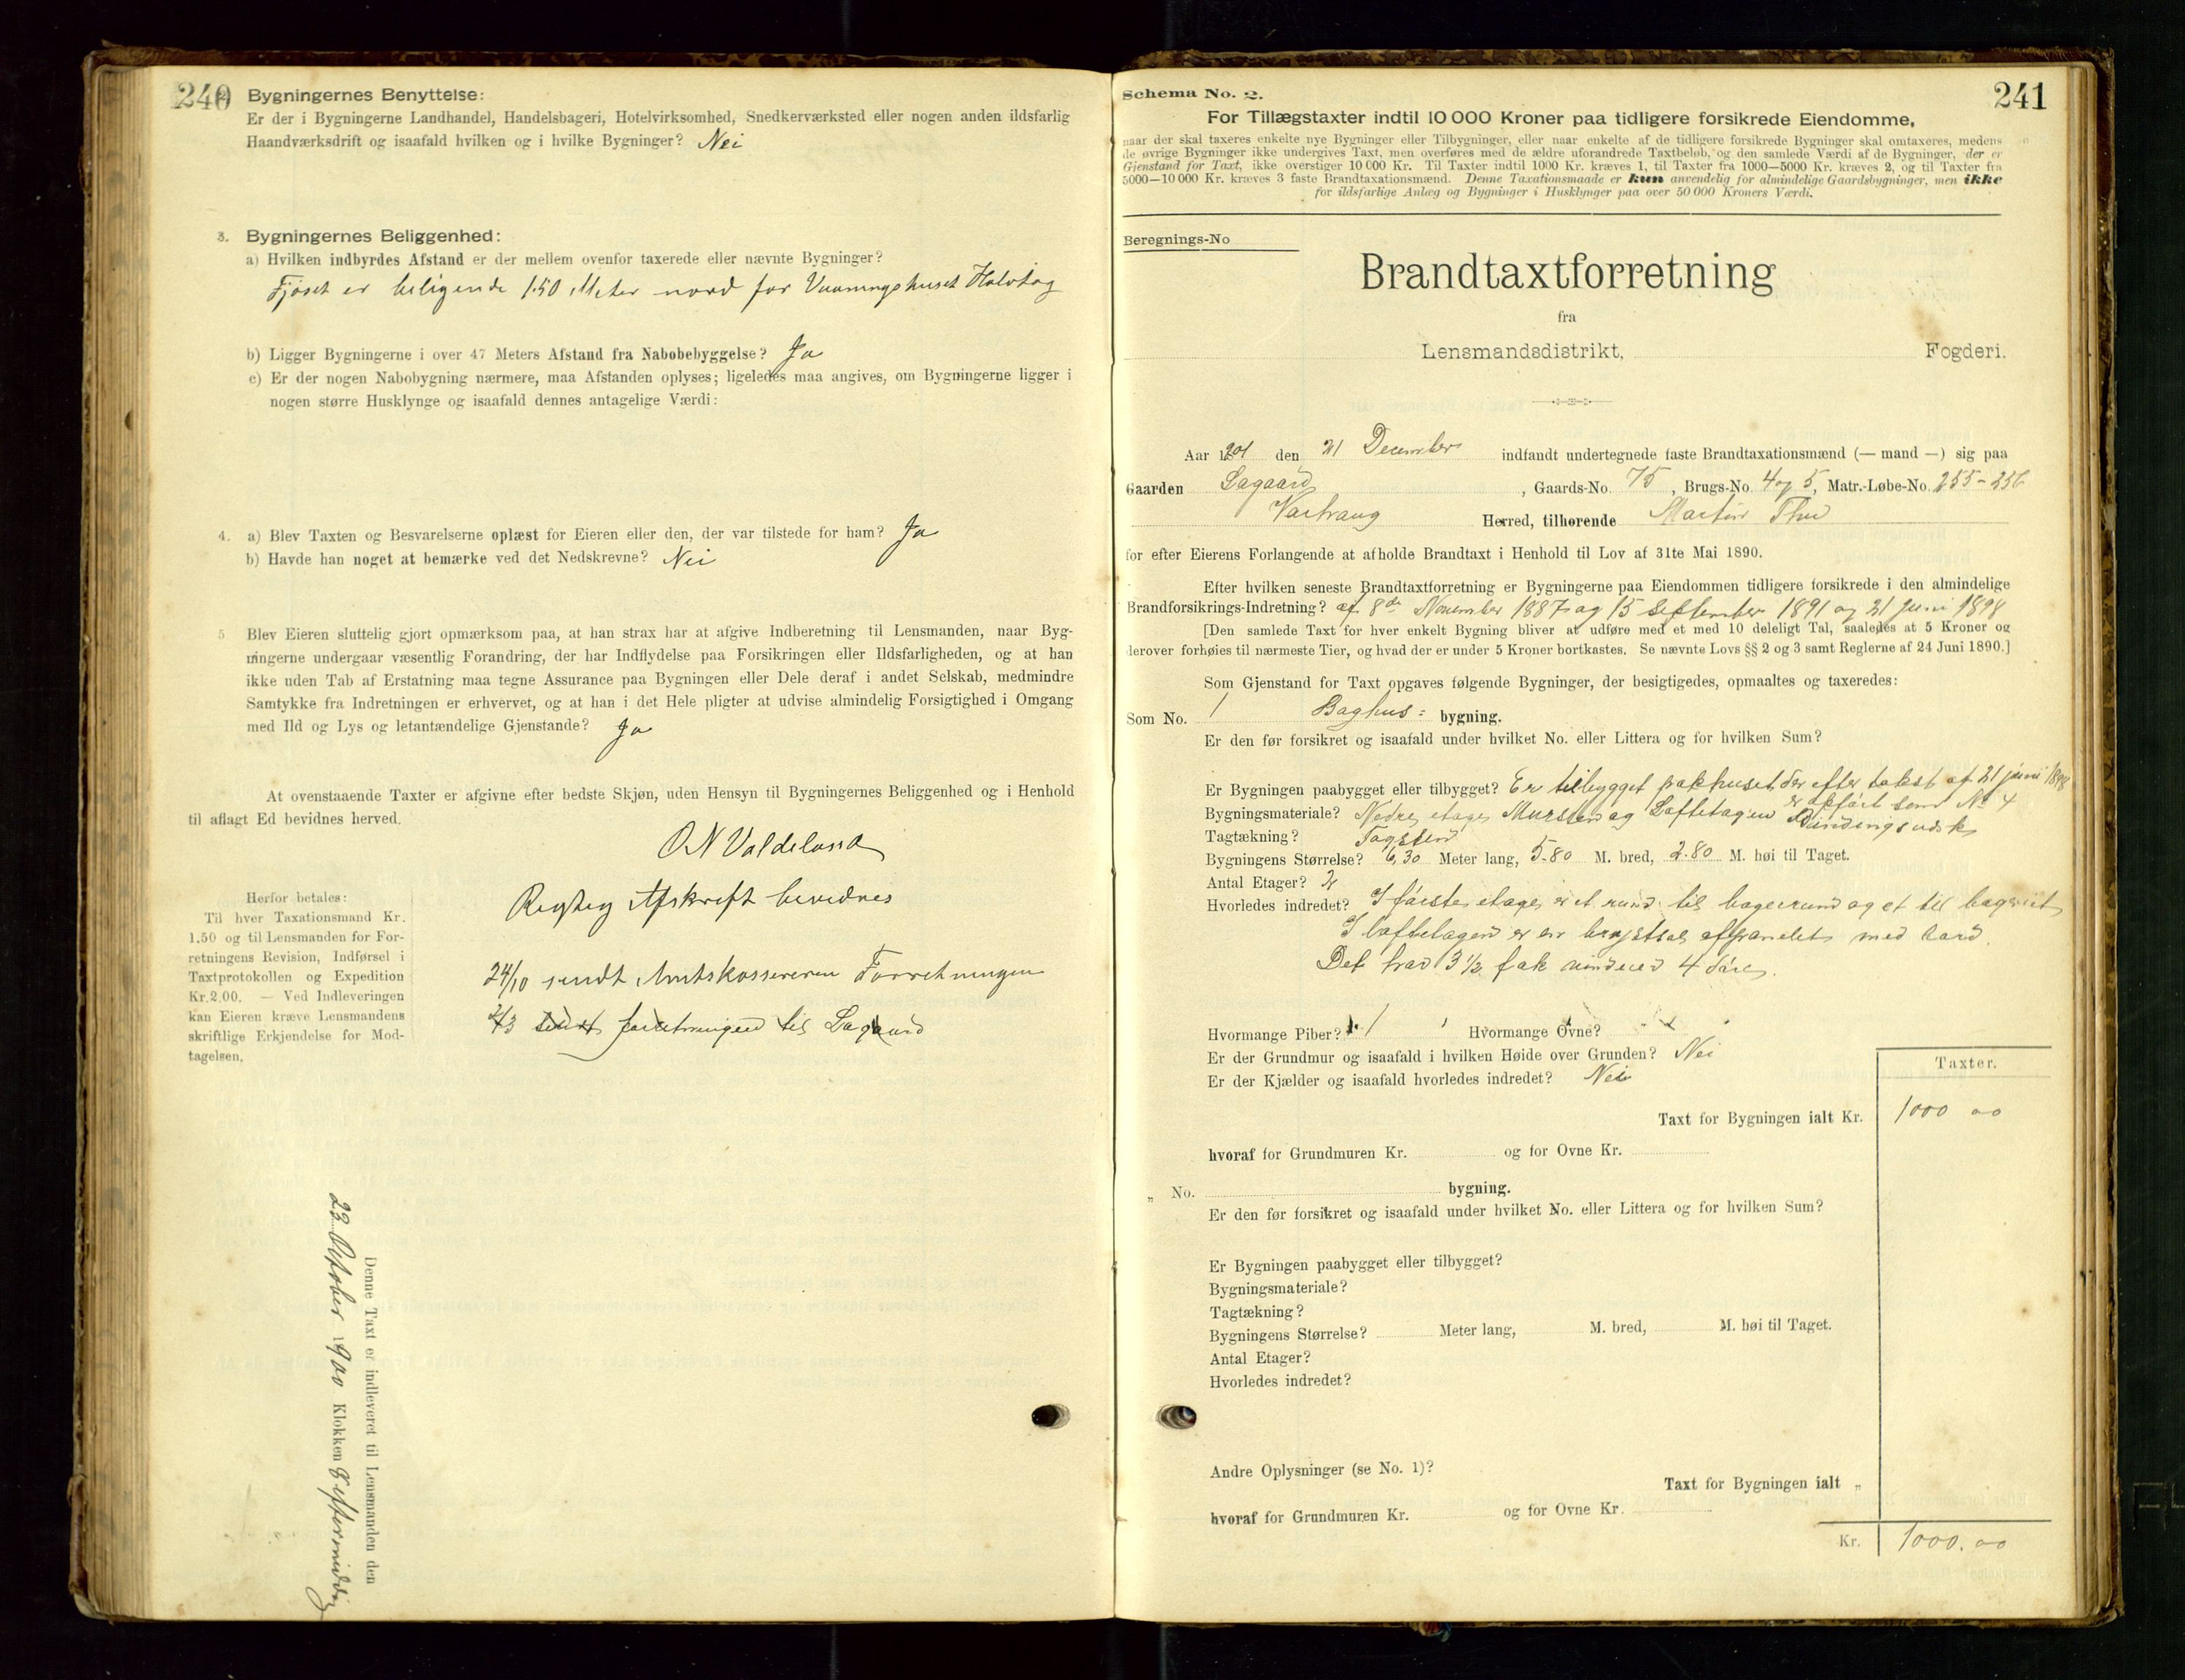 240
2. Bygningernes Benyttelse:
Er der i Bygningerne Landhandel, Handelsbageri, Hotelvirksomhed, Snedkerværksted eller nogen anden ildsfarlig
Haandværksdrift og isaafald hvilken og i hvilke Bygninger? Nei
3. Bygningernes Beliggenhed:
a) Hvilken indbyrdes Afstand er der mellem ovenfor taxerede eller nævnte Bygninger?
Fjøset er beligende 1.50 Meter nord for Vaaningshuset
b) Ligger Bygningerne i over 47 Meters Afstand fra Nabobebyggelse? Ja
c) Er der nogen Nabobygning nærmere, maa Afstanden oplyses; ligeledes maa angives, om Bygningerne ligger i
nogen større Husklynge og isaafald dennes antagelige Værdi:
4. a) Blev Taxten og Besvarelserne oplæst for Eieren eller den, der var tilstede for ham? Ja
b) Havde han noget at bemærke ved det Nedskrevne? Nei
5 Blev Eieren sluttelig gjort opmærksom paa, at han strax har at afgive Indberetning til Lensmanden, naar Byg-
ningerne undergaar væsentlig Forandring, der har Indflydelse paa Forsikringen eller Ildsfarligheden, og at han
ikke uden Tab af Erstatning maa tegne Assurance paa Bygningen eller Dele deraf i andet Selskab, medmindre
Samtykke fra Indretningen er erhvervet, og at han i det Hele pligter at udvise almindelig Forsigtighed i Omgang
med Ild og Lys og letantændelige Gjenstande? Ja
At ovenstaaende Taxter er afgivne efter bedste Skjøn, uden Hensyn til Bygningernes Beliggenhed og i Henhold
til aflagt Ed bevidnes herved.
O N Valdeland
Rigtig Afskrift bevidnes
24/10 sendt Amtskassereren Forretningen
2/3 sendt forretningen til Lagaard
Herfor betales:
Til hver Taxationsmand Kr.
1.50 og til Lensmanden for For-
retningens Revision, Indførsel i
Taxtprotokollen og Expedition
Kr. 2.00. — Ved Indleveringen
kan Eieren kræve Lensmandens
skriftlige Erkjendelse for Mod-
tagelsen.
Denne Taxt er indleveret til Lensmanden den
23 October 1900 Klokken 8 eftermiddag
241
Schema No. 2.
For Tillægstaxter indtil 10 000 Kroner paa tidligere forsikrede Eiendomme,
naar der skal taxeres enkelte nye Bygninger eller Tilbygninger, eller naar enkelte af de tidligere forsikrede Bygninger skal omtaxeres, medens
de øvrige Bygninger ikke undergives Taxt, men overføres med de ældre uforandrede Taxtbeløb, og den samlede Værdi af de Bygninger, der er
Gjenstand for Taxt, ikke overstiger 10 000 Kr. Til Taxter indtil 1000 Kr. kræves 1, til Taxter fra 1000—5000 Kr. kræves 2, og til Taxter fra
5000—10 000 Kr. kræves 3 faste Brandtaxationsmænd. Denne Taxationsmaade er kun anvendelig for almindelige Gaardsbygninger, men ikke
for ildsfarlige Anlæg og Bygninger i Husklynger paa over 50 000 Kroners Værdi.
Beregnings-No
Brandtaxtforretning
fra
Lensmandsdistrikt, Fogderi.
Aar 1901 den 21 December indfandt undertegnede faste Brandtaxationsmænd (— mand —) sig paa
Gaarden Lagaard, Gaards-No. 75, Brugs-No. 4 og 5, Matr.-Løbe-No. 255-256
Herred, tilhørende Martin
for efter Eierens Forlangende at afholde Brandtaxt i Henhold til Lov af 31te Mai 1890.
Efter hvilken seneste Brandtaxtforretning er Bygningerne paa Eiendommen tidligere forsikrede i den almindelige
Brandforsikrings-Indretning? af 8de November 1887 og 15 September 1891 og 21 juni 1898
[Den samlede Taxt for hver enkelt Bygning bliver at udføre med et med 10 deleligt Tal, saaledes at 5 Kroner og
derover forhøies til nærmeste Tier, og hvad der er under 5 Kroner bortkastes. Se nævnte Lovs §§ 2 og 3 samt Reglerne af 24 Juni 1890.]
Som Gjenstand for Taxt opgaves følgende Bygninger, der besigtigedes, opmaaltes og taxeredes:
Som No. 1 Baghus: bygning.
Er den før forsikret og isaafald under hvilket No. eller Littera og for hvilken Sum?
Er Bygningen paabygget eller tilbygget? Er tilbygget pakhuset der efter takst af 21 juni 1898
er opført som No 4
Bygningsmateriale? Nedre etage Mursten og Loftetagen Bindingsværk
Tagtækning? Tagsten
Bygningens Størrelse? 6,30 Meter lang, 5.80 M. bred, 2.80 M. høi til Taget.
Antal Etager? 2
Hvorledes indredet? I første etage er et rum til bagerrum og et til bageriet
I loftetagen er en afpanelet med bord.
Det trad 3 1/2 fak vinduer 4 døre.
Hvormange Piber? 1 Hvormange Ovne?
Er der Grundmur og isaafald i hvilken Høide over Grunden? Nei
Er der Kjælder og isaafald hvorledes indredet? Nei
Taxter.
Taxt for Bygningen ialt Kr. 1000 00
hvoraf for Grundmuren Kr. og for Ovne Kr.
„ No. bygning.
Er den før forsikret og isaafald under hvilket No. eller Littera og for hvilken Sum?
Er Bygningen paabygget eller tilbygget?
Bygningsmateriale?
Tagtækning?
Bygningens Størrelse? Meter lang, M. bred, M. høi til Taget.
Antal Etager?
Hvorledes indredet?
Andre Oplysninger (se No. 1)?
Taxt for Bygningen ialt „
hvoraf for Grundmuren Kr. og for Ovne Kr.
Kr. 1000.00